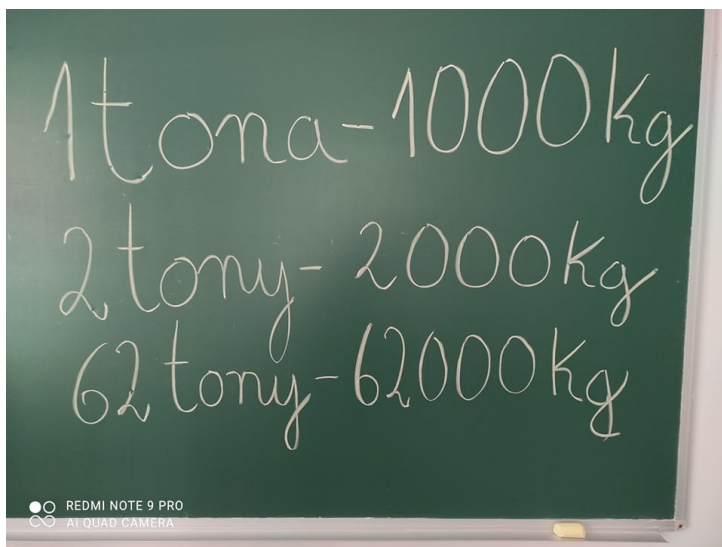 1 tona - 1000 kg
2 tony - 2000 kg
62 tony - 62000 kg
REDMI NOTE 9 PRO
AI QUAD CAMERA